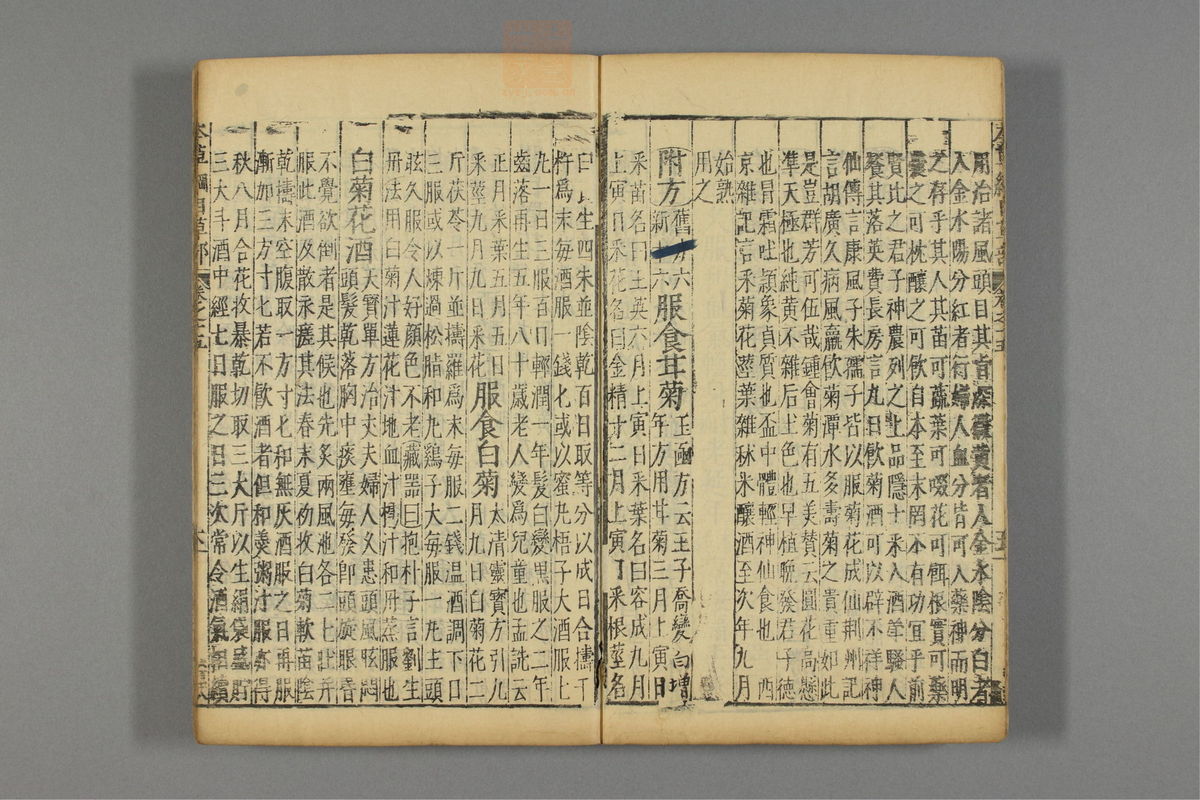 用治諸風頭目其旨深微黄者入金水陰分白者
入金水陽分紅者行婦人血分皆可入藥神而明
之存乎其人其苗可蔬葉可啜花可餌根實可藥
囊之可枕釀之可飲自本至末罔不有功宜乎前
賢比之君子神農列之上品隱士采入酒斝騷人
餐其落英費長房言九日飲菊酒可以辟不祥神
仙傳言康風子朱孺子皆以服菊花成仙荆州記
言胡廣久病風羸飲菊潭水多壽菊之貴重如此
是豈群芳可伍哉鍾會菊有五美贊云圓花高懸
凖天極也純黄不雜后土色也早植晚發君子德
也冒霜吐穎象貞質也盃中體輕神仙食也西
京雜記言采菊花莖葉雜秫米釀酒至次年九月
始熟
用之
附方舊六新六服食甘菊玉函方云王子喬變白增年方用甘菊三月上寅日
采苗名曰玉英六月上寅日采葉名曰容成九月
上寅日采花名曰金精十二月上寅日采根莖名
曰長生四朱並陰乾百日取等分以成日合擣千
杵爲末每酒服一錢匕或以蜜丸梧子大酒服七
九一日三服百日輕潤一年髮白變黑服之二年
齒落再生五年八十歲老人變爲兒童也孟詵云
正月采葉五月五日
采莖九月九日采花服食白菊太清靈寶方引九月九日白菊花二
斤茯苓一斤並擣羅爲末每服二錢温酒調下日
三服或以煉過松脂和丸鷄子大每服一丸主頭
眩久服令人好顔色不老藏器曰抱朴子言劉生
丹法用白菊汁蓮花汁地血汁樗汁和丹蒸服也
白菊花酒天寶單方治丈夫婦人久患頭風眩悶頭髮乾落胸中痰壅每發即頭旋眼昏
不覺欲倒者是其候也先炙兩風池各二七壯并
服此酒及散永瘥其法春末夏初收白菊軟苗陰
乾擣末空腹取一方寸匕和無灰酒服之日再服
漸加三方寸匕若不飲酒者但和羹粥汁服亦得
秋八月合花收暴乾切取三大斤以生絹袋盛貯
三大斗酒中經七日服之日三次常令酒氣相續
本草綱目草部
卷之十五